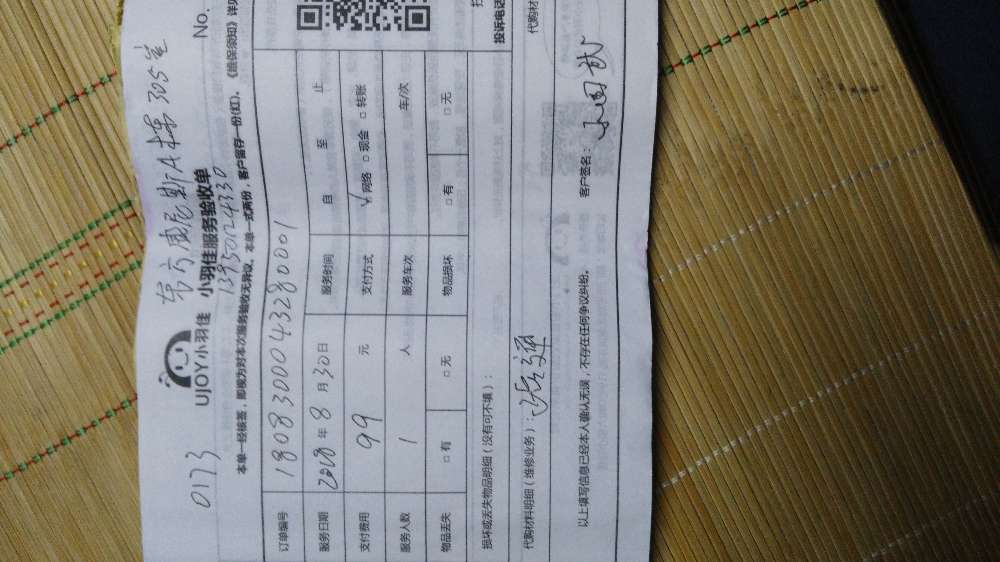 0173 东方威尼斯A栋 305室
UJOY小羽佳 小羽佳服务验收单 No.
13950124330
本单一经核签，即视为对本次服务验收无异议。本单一式两份，客户留存一份(红)。《维保须知》详见
订单编号 1808300043280001
服务日期 2018 年 8 月 30 日 服务时间 自 至 止
支付费用 99 元 支付方式 网络 □ 现金 □ 转账
服务人数 1 人 服务车次 车/次
物品丢失 □ 有 □ 无 物品损坏 □ 有 □ 无
损坏或丢失物品明细（没有可不填）：
投诉电话
代购材料明细（维修业务）： 代购材
以上填写信息已经本人确认无误，不存在任何争议纠纷。 客户签名：